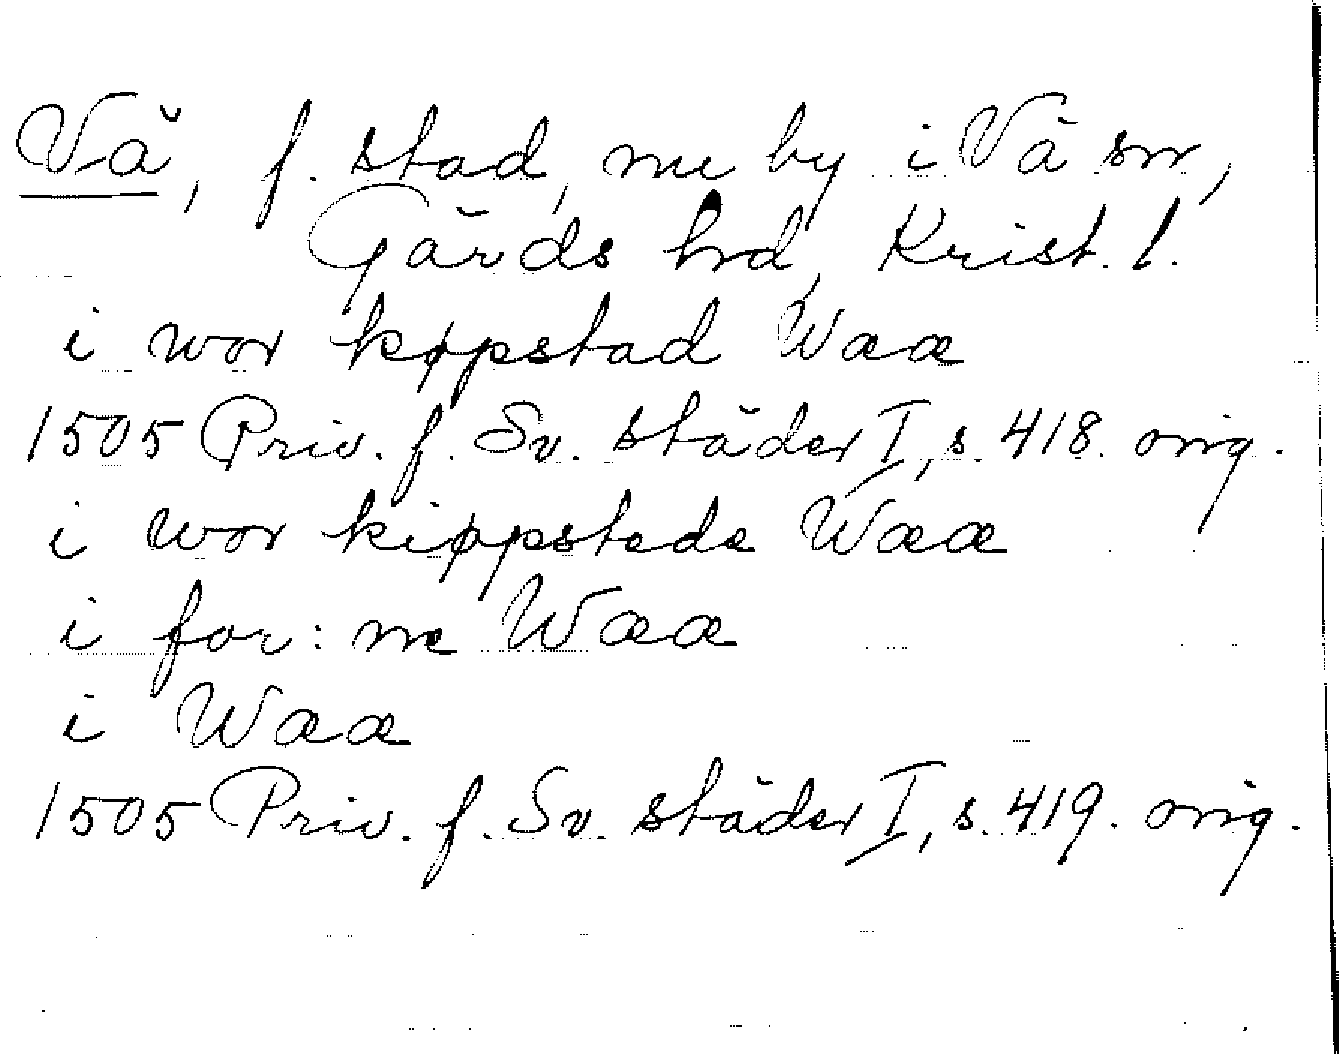 Vå, f. stad, nu by i Vå sn,
Gärds hd, Krist. l.
i wor køpstad Waa
1505 Priv. f. Sv. städer I, s. 418. orig.
i wor kiøpstede Waa
i for:ne Waa
i Waa
1505 Priv. f. Sv. städer I, s. 419. orig.